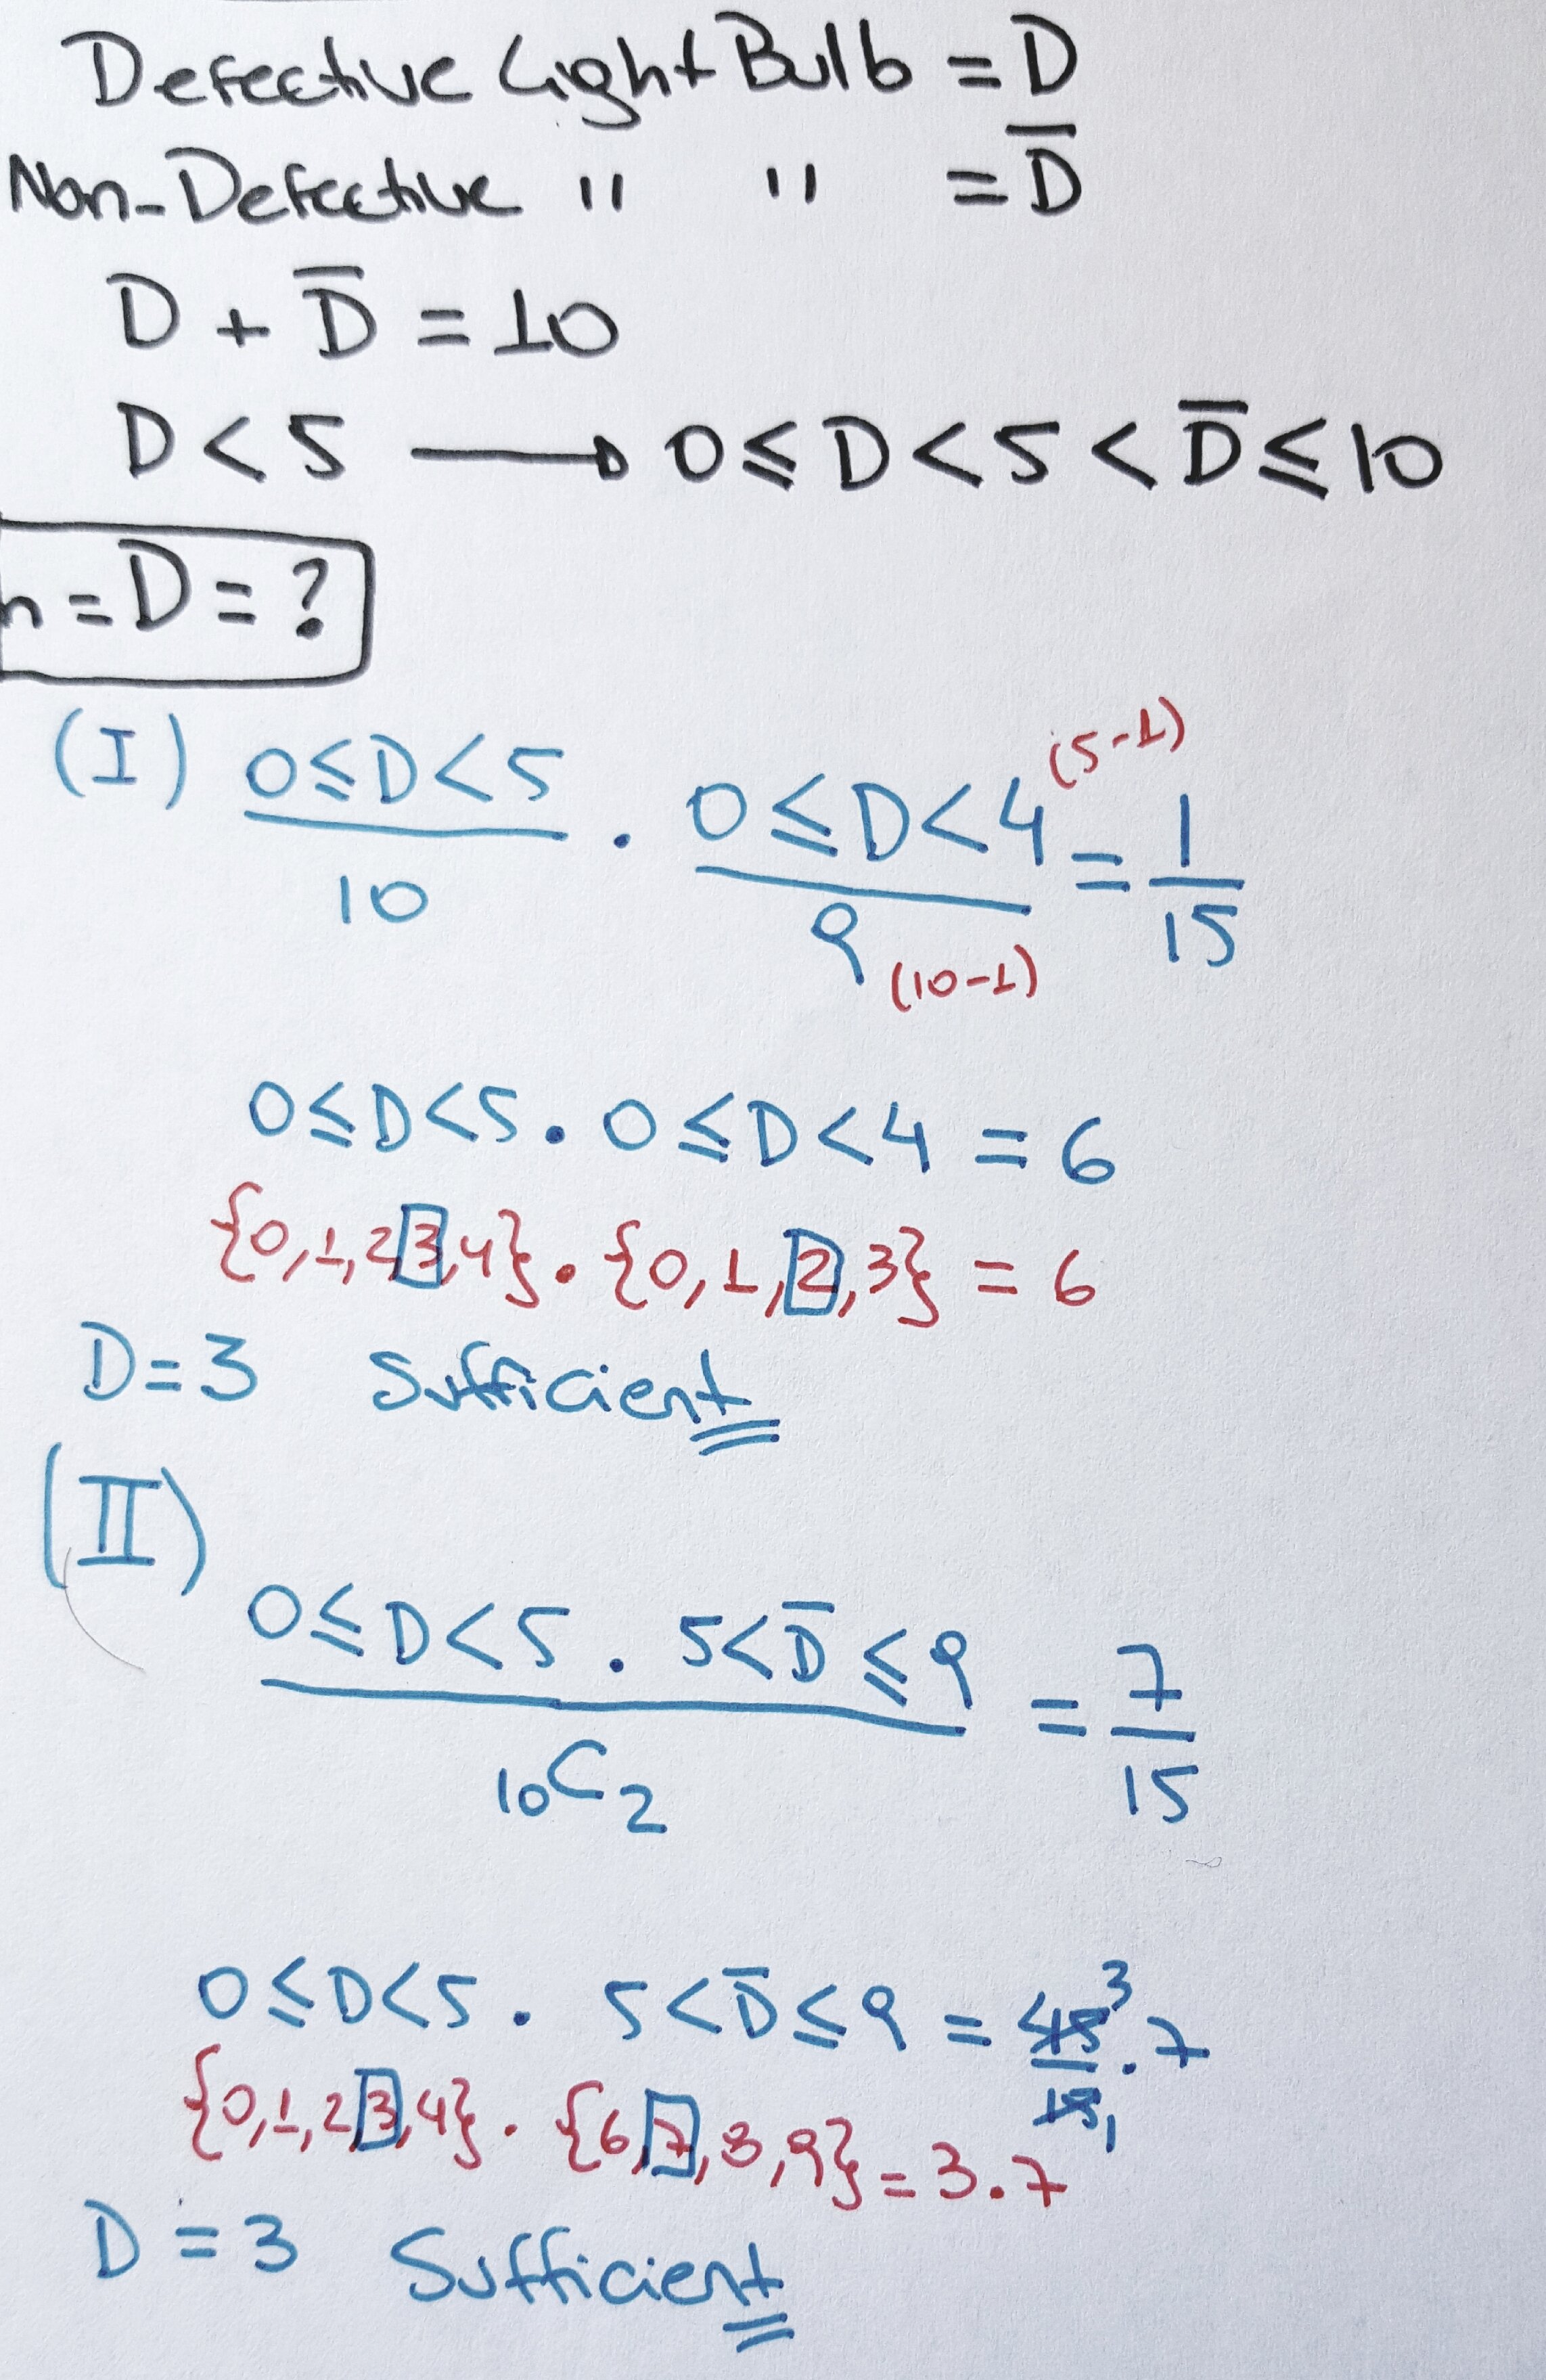 Defective Light Bulb = D
Non-Defective " " = D̅
D + D̅ = 10
D < 5 → 0 ≤ D < 5 < D̅ ≤ 10
n = D = ?
(I) 0≤D<5 / 10 . 0≤D<4 (5-1) / 9 (10-1) = 1/15
0≤D<5 . 0≤D<4 = 6
{0,1,2,3,4} . {0,1,2,3} = 6
D=3 Sufficient
(II)
0≤D<5 . 5<D̅≤9 / 10C2 = 7/15
0≤D<5 . 5<D̅≤9 = 45 3 / 15 1 . 7
{0,1,2,3,4} . {6,7,8,9} = 3.7
D = 3 Sufficient